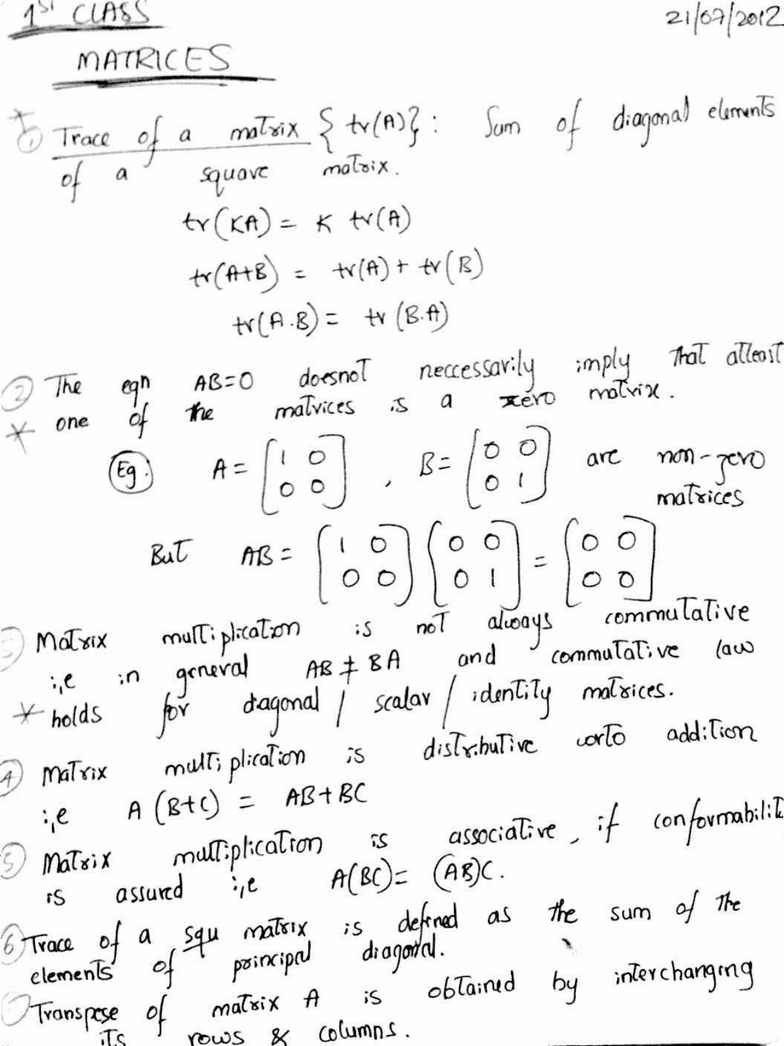 1ST CLASS 21/07/2012
MATRICES
* ① Trace of a matrix { tr(A)} : Sum of diagonal elements
of a square matrix.
tr(KA) = K tr(A)
tr(A+B) = tr(A) + tr(B)
tr(A.B) = tr (B.A)
② The eqn AB=0 doesnot neccessarily imply that atleast
* one of the matrices is a zero matrix.
Eg: A = [1 0 , B = [0 0 are non-zero
0 0] 0 1] matrices
But AB = [1 0 [0 0 = [0 0
0 0] 0 1] 0 0]
③ Matrix multiplication is not always commutative
i,e in general AB ≠ BA and commutative law
* holds for diagonal / scalar / identity matrices.
④ Matrix multiplication is distributive worto addition
i,e A (B+C) = AB+BC
⑤ Matrix multiplication is associative, if conformabilit
is assured i,e A(BC) = (AB)C.
⑥ Trace of a squ matrix is defined as the sum of the
elements of principal diagonal.
Transpose of matrix A is obtained by interchanging
its rows & columns.